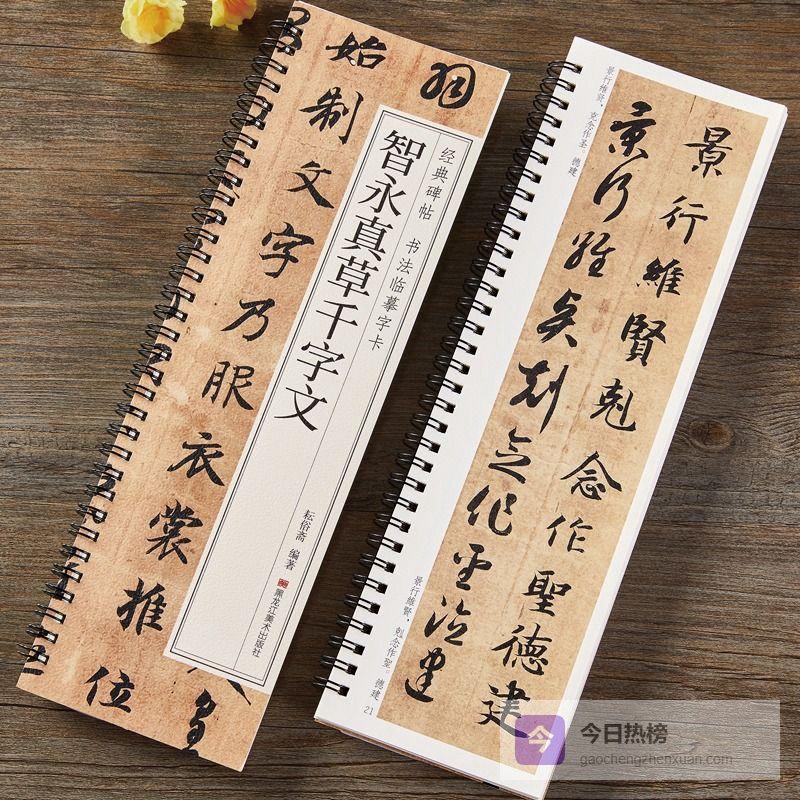 始制文字乃服衣裳推位
经典碑帖 书法临摹字卡
智永真草千字文
耘俗斋 编著
黑龙江美术出版社
景行维贤，克念作圣。德建
景行維賢剋念作聖德建
景行維賢剋念作聖德建
景行維賢，剋念作聖。德建
21
今
今日热榜
gaochengzhenxuan.com